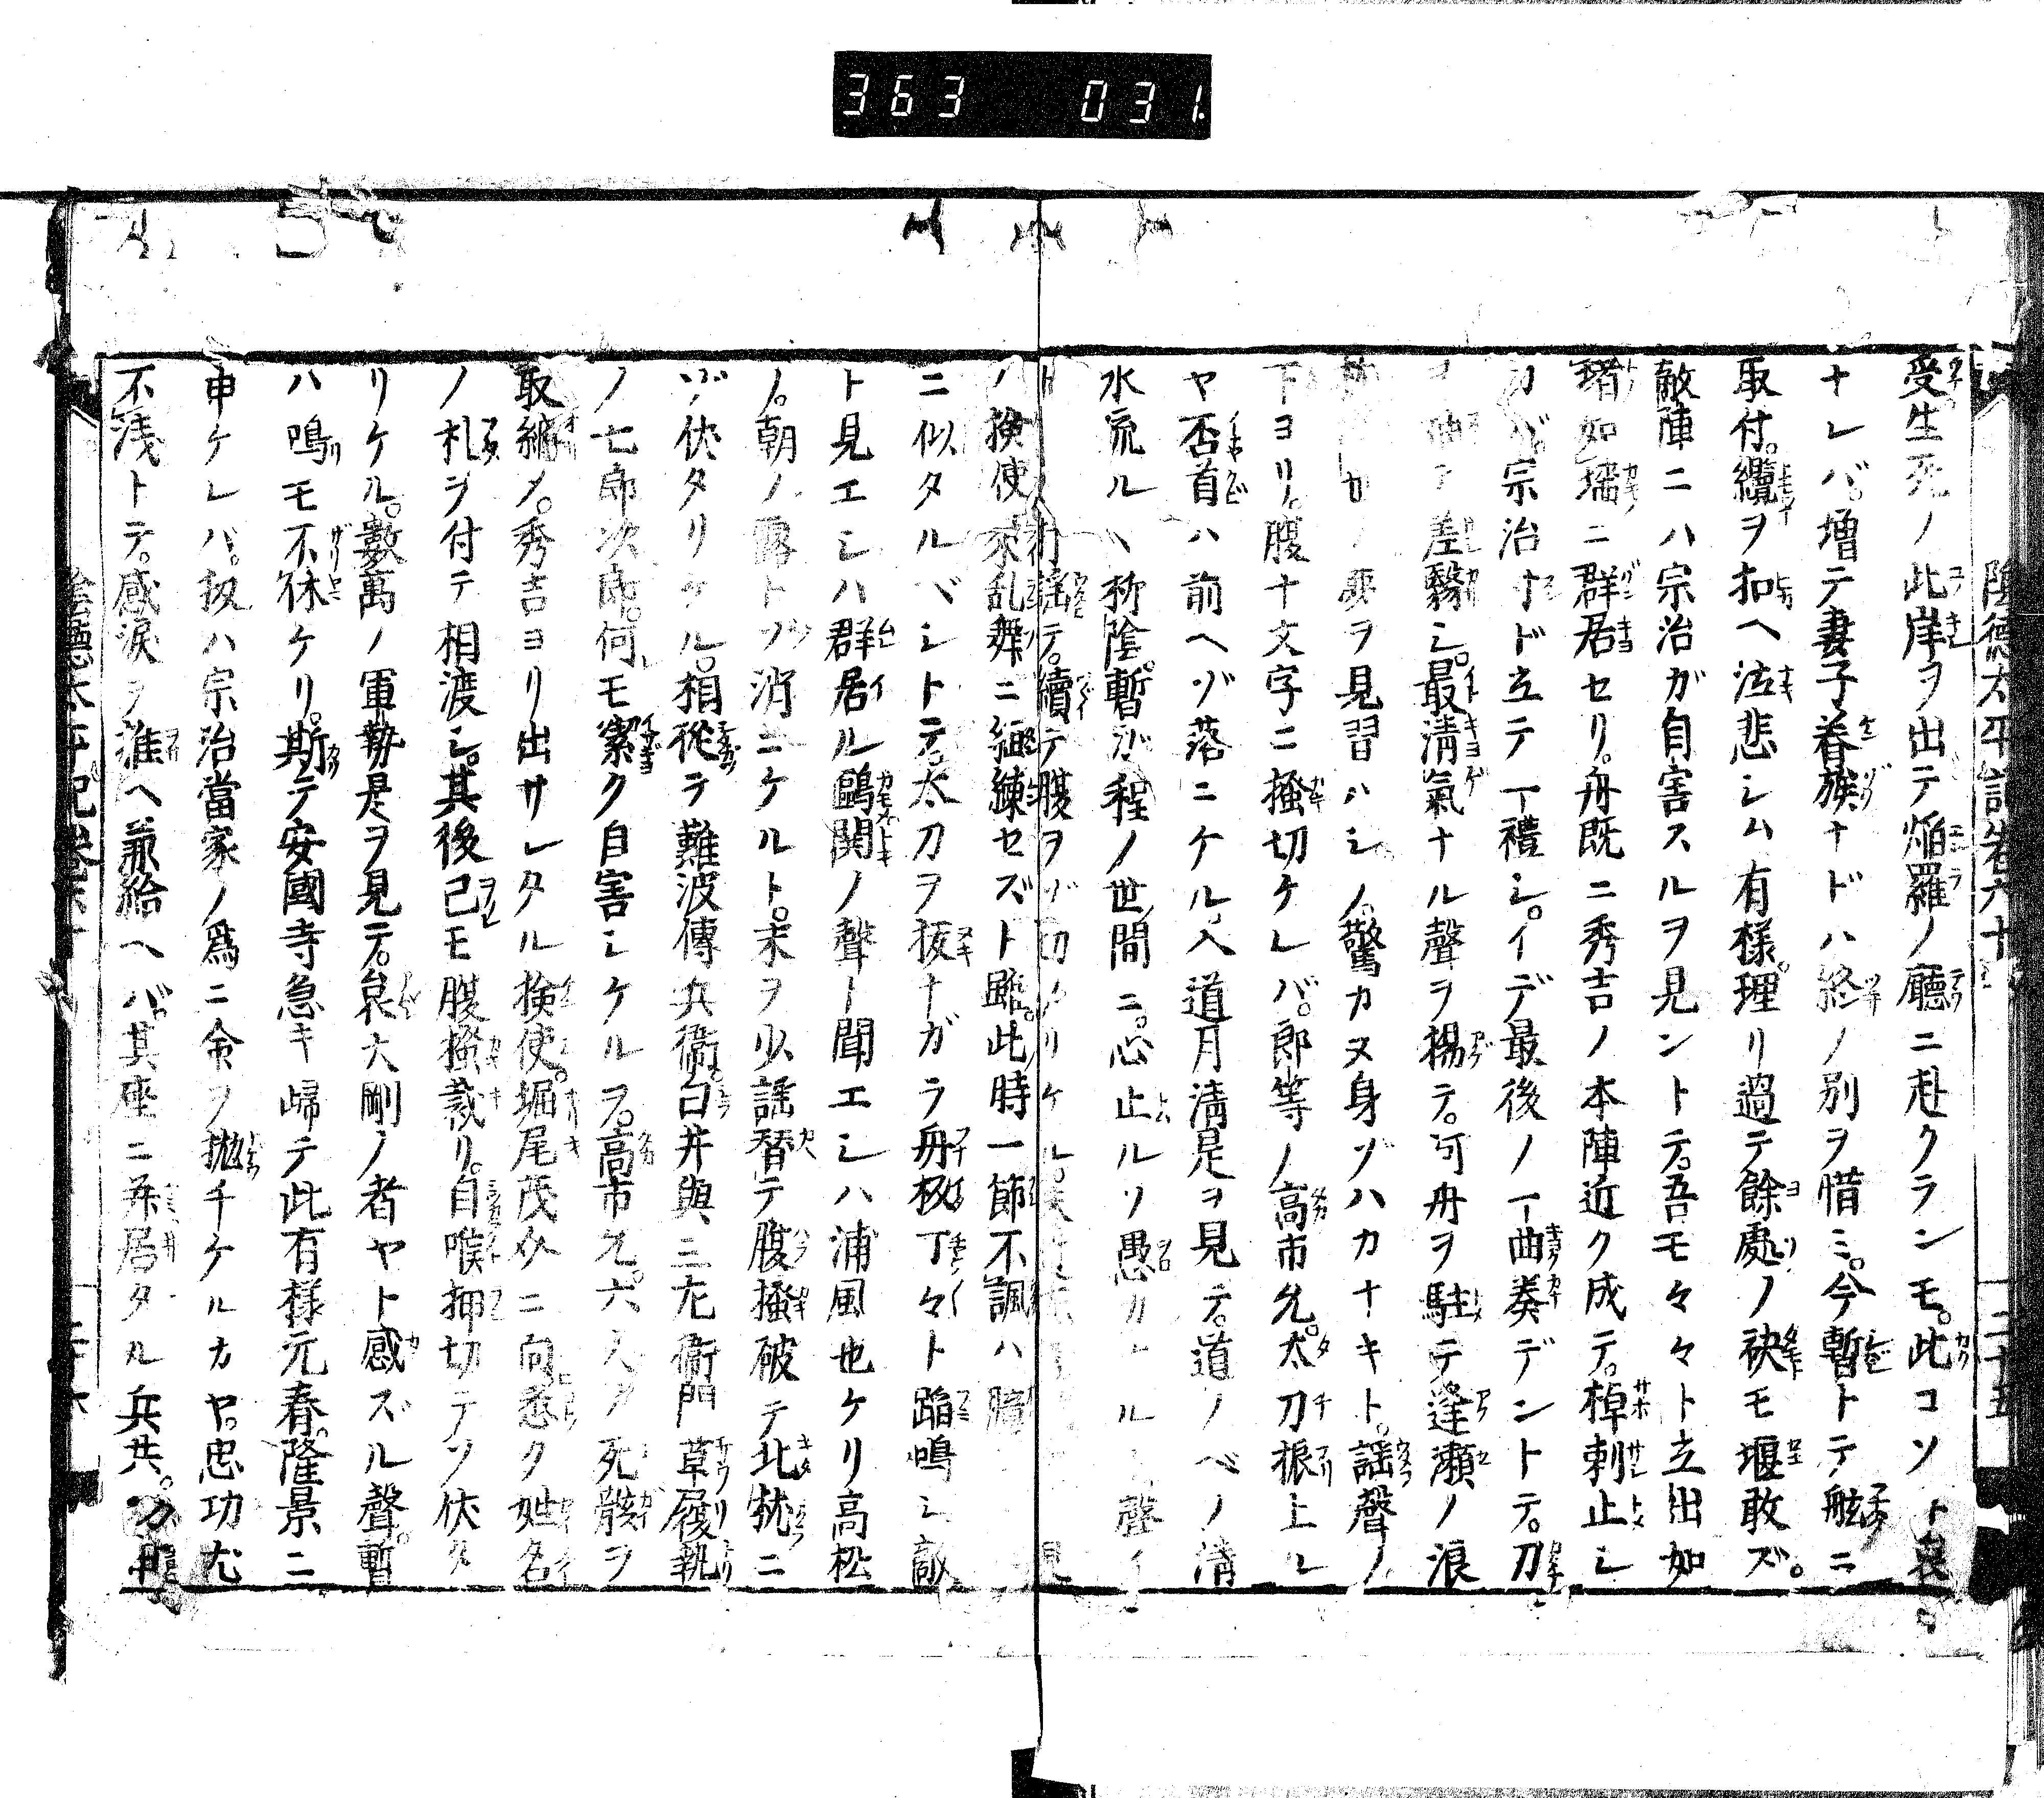 363 031
陰徳太平記卷六十 二十五
受生死ノ此岸ヲ出テ焔羅ノ廳ニ赴クランモ。此コソト哀。
ナレバ。増テ妻子眷族ナドハ終ノ別ヲ惜ミ。今暫トテ舷ニ
取付。纜ヲ扣ヘ泣悲シム有様。理リ過テ餘處ノ袂モ堰敢ズ。
敵陣ニハ宗治ガ自害スルヲ見ントテ。吾モ々々ト立出如
堵如墻ニ群居セリ。舟既ニ秀吉ノ本陣近ク成テ。棹刺止シ
カバ。宗治寸ド立テ一禮シ。イデ最後ノ一曲奏デントテ。刀
差翳シ。最清氣ナル聲ヲ揚テ。河舟ヲ駐テ逢瀬ノ浪
ノ夢ヲ見習ハシノ。驚カヌ身ゾハカナキト。謡聲ノ
下ヨリ。腹十文字ニ掻切ケレバ。郎等ノ高市允。太刀振上ル
ヤ否首ハ前ヘゾ落ニケル。入道月清是ヲ見テ。道ノベノ清
水流ル丶柳陰。暫ガ程ノ世間ニ。心止ルソ愚カナル聲
ト謡テ。續テ腹ヲゾ切タリケル。
ノ檢使亦乱舞ニ細練セズト雖。此時一節不諷ハ臆
ニ似タルベシトテ。太刀ヲ抜ナガラ舟板丁々ト蹈鳴シ敵
ト見エシハ群居ル鷗鬨ノ聲ト聞エシハ浦風也ケリ高松
ノ。朝ノ露トゾ消ニケルト。末ヲ少謡替テ腹掻破テ北枕ニ
ゾ伏タリケル。相從テ難波傳兵衞。白井與三左衞門草履執
ノ七郎次郎。何モ潔ク自害シケルヲ。高市允。六人ノ死骸ヲ
取納メ。秀吉ヨリ出サレタル検使。堀尾茂介ニ向悉ク姓名
ノ札ヲ付テ相渡シ。其後己モ腹掻裁リ。自喉押切テソ伏タ
リケル。數萬ノ軍勢是ヲ見テ。哀大剛ノ者ヤト感ズル聲。暫
ハ鳴モ不休ケリ。斯テ安國寺急キ歸テ此有様元春。隆景ニ
申ケレバ。扨ハ宗治當家ノ爲ニ命ヲ抛チケルカヤ。忠功尤
不淺トテ。感涙ヲ推ヘ兼給ヘバ。其座ニ並居タル兵共。